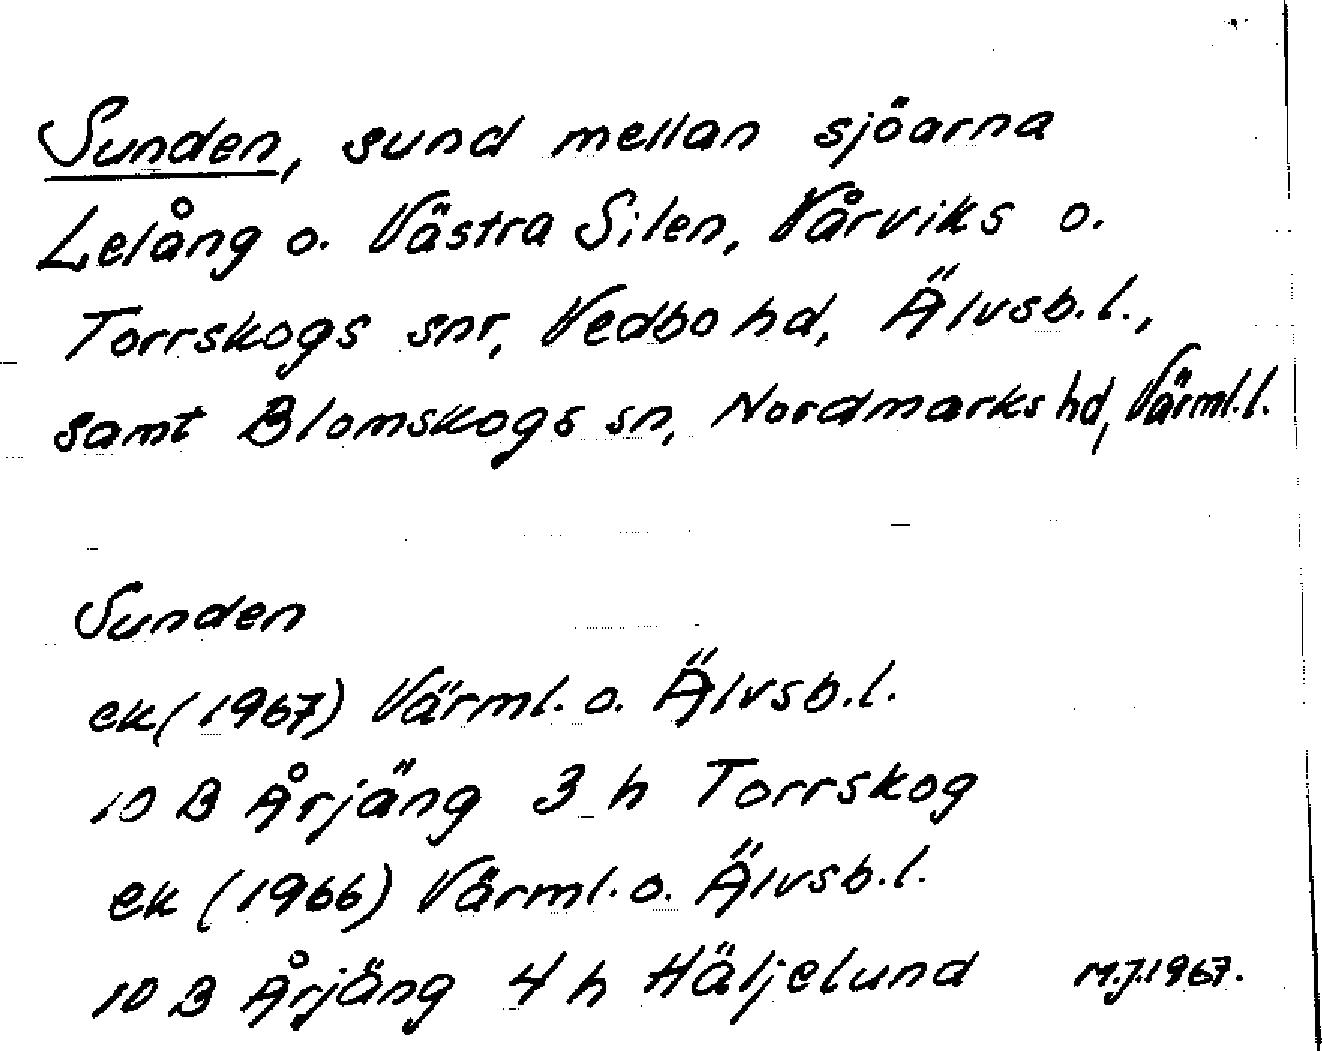 Sunden, sund mellan sjöarna
Lelång o. Västra Silen, Vårviks o.
Torrskogs snr, Vedbo hd, Älvsb.l.,
samt Blomskogs sn, Nordmarks hd, Värml.l.
Sunden
ek (1967) Värml. o. Älvsb.l.
10 B Årjäng 3 h Torrskog
ek (1966) Värml. o. Älvsb.l.
10 B Årjäng 4 h Häljelund M.J.1967.